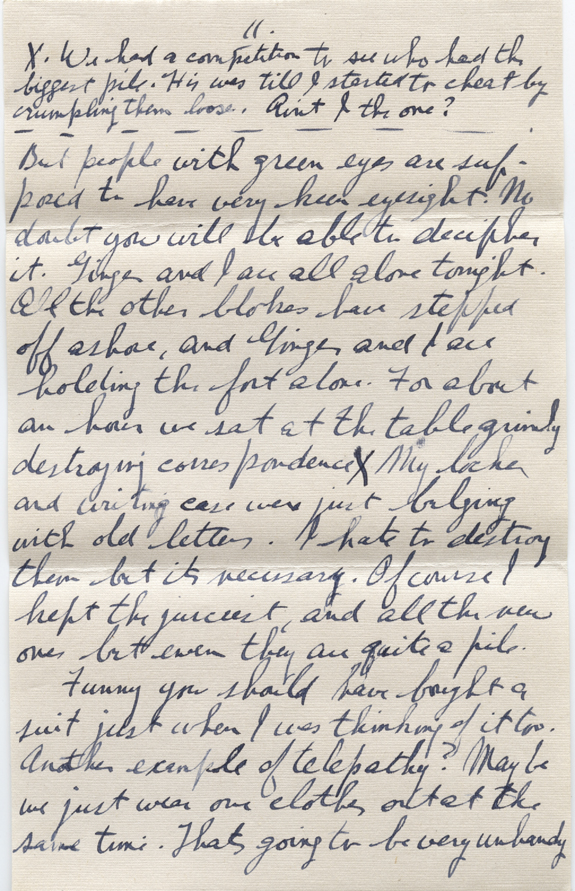 11.
X. We had a competition to see who had the
biggest pile. His was till I started to cheat by
crumpling them loose. Aint I the one?
But people with green eyes are sup-
posed to have very keen eyesight. No
doubt you will be able to decipher
it. Ginger and I are all alone tonight.
All the other blokes have stepped
off ashore, and Ginger and I are
holding the fort alone. For about
an hour we sat at the table grimly
destroying correspondence X My locker
and writing case were just bulging
with old letters. I hate to destroy
them but its necessary. Of course I
kept the juiciest, and all the new
ones but even they are quite a pile.
Funny you should have bought a
suit just when I was thinking of it too.
Another example of telepathy? Maybe
we just wear our clothes out at the
same time. Thats going to be very unhandy